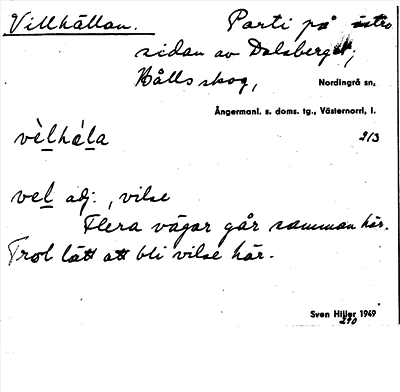 Villhällan. Parti på östra
sidan av Dalsberget,
Hålls skog, Nordingrå sn,
Ångermanl. s. doms. tg., Västernorrl. l.
vèlhæ̀la 2/3
vel adj., vilse
Flera vägar går samman här.
Trol lätt att bli vilse här.
Sven Hiller 1949
290